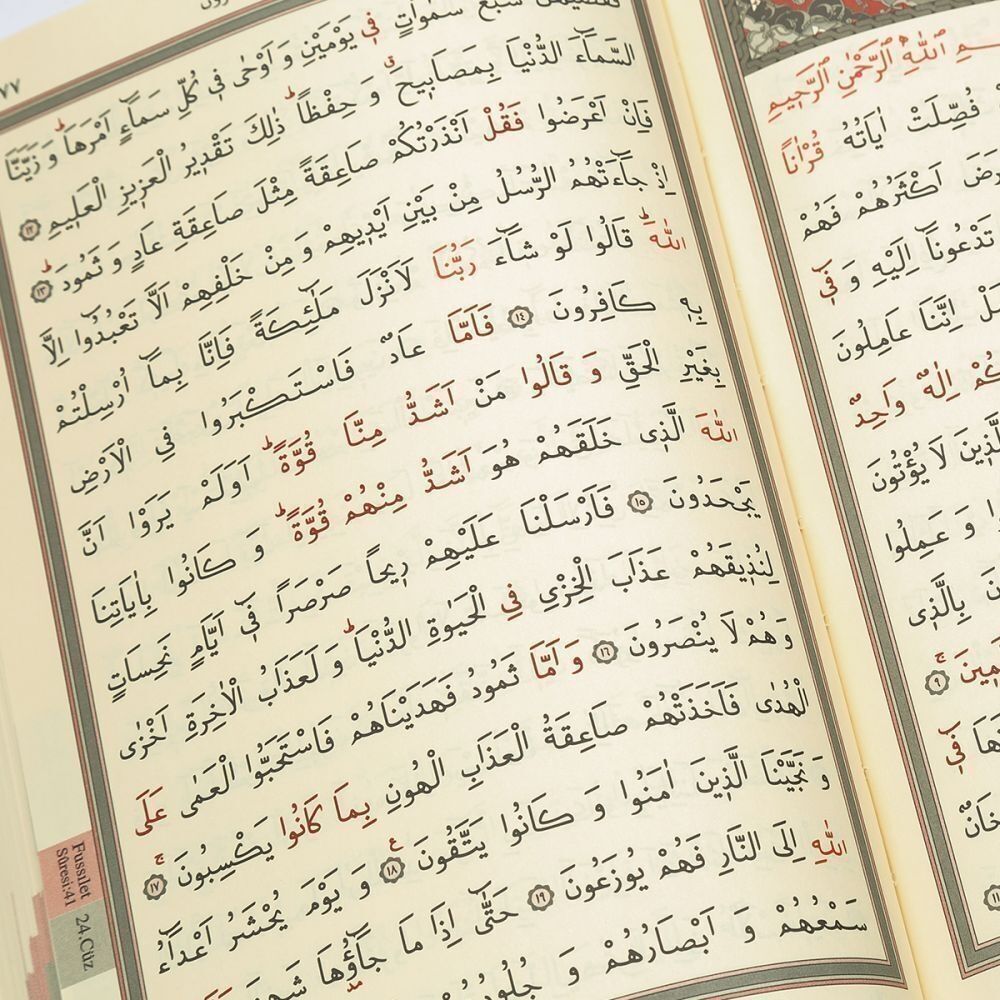 اللّٰهِ الرَّحْمٰنِ الرَّحٖيمِ
فُصِّلَتْ اٰيَاتُهُ قُرْاٰناً
اَكْثَرُهُمْ فَهُمْ
تَدْعُونَٓا اِلَيْهِ وَ فٖٓى
اِنَّنَا عَامِلُونَ
اِلٰهٌ وَاحِدٌ
لَا يُؤْتُونَ
وَ عَمِلُوا
بِالَّذٖى
٩
فٖٓى
٧٧
سَمٰوَاتٍ فٖى يَوْمَيْنِ وَ اَوْحٰى فٖى كُلِّ سَمَٓاءٍ اَمْرَهَاؕ وَ زَيَّنَّا
السَّمَٓاءَ الدُّنْيَا بِمَصَابٖيحَۗ وَ حِفْظاًؕ ذٰلِكَ تَقْدٖيرُ الْعَزٖيزِ الْعَلٖيمِ ١٢
فَاِنْ اَعْرَضُوا فَقُلْ اَنْذَرْتُكُمْ صَاعِقَةً مِثْلَ صَاعِقَةِ عَادٍ وَ ثَمُودَؕ ١٣
اِذْ جَٓاءَتْهُمُ الرُّسُلُ مِنْ بَيْنِ اَيْدٖيهِمْ وَ مِنْ خَلْفِهِمْ اَلَّا تَعْبُدُٓوا اِلَّا
اللّٰهَؕ قَالُوا لَوْ شَٓاءَ رَبُّنَا لَاَنْزَلَ مَلٰٓئِكَةً فَاِنَّا بِمَٓا اُرْسِلْتُمْ
بِهٖ كَافِرُونَ ١٤ فَاَمَّا عَادٌ فَاسْتَكْبَرُوا فِي الْاَرْضِ
بِغَيْرِ الْحَقِّ وَ قَالُوا مَنْ اَشَدُّ مِنَّا قُوَّةًؕ اَوَلَمْ يَرَوْا اَنَّ
اللّٰهَ الَّذٖى خَلَقَهُمْ هُوَ اَشَدُّ مِنْهُمْ قُوَّةًؕ وَ كَانُوا بِاٰيَاتِنَا
يَجْحَدُونَ ١٥ فَاَرْسَلْنَا عَلَيْهِمْ رٖيحاً صَرْصَراً فٖٓى اَيَّامٍ نَحِسَاتٍ
لِنُذٖيقَهُمْ عَذَابَ الْخِزْيِ فِي الْحَيٰوةِ الدُّنْيَاؕ وَ لَعَذَابُ الْاٰخِرَةِ اَخْزٰى
وَهُمْ لَا يُنْصَرُونَ ١٦ وَ اَمَّا ثَمُودُ فَهَدَيْنَاهُمْ فَاسْتَحَبُّوا الْعَمٰى عَلَى
الْهُدٰى فَاَخَذَتْهُمْ صَاعِقَةُ الْعَذَابِ الْهُونِ بِمَا كَانُوا يَكْسِبُونَۚ ١٧
وَ نَجَّيْنَا الَّذٖينَ اٰمَنُوا وَ كَانُوا يَتَّقُونَ ١٨ ع وَ يَوْمَ يُحْشَرُ اَعْدَٓاءُ
اللّٰهِ اِلَى النَّارِ فَهُمْ يُوزَعُونَ ١٩ حَتّٰٓى اِذَا مَا جَٓاؤُ۫هَا
سَمْعُهُمْ وَ اَبْصَارُهُمْ وَ
Fussılet
Sûresi:41
24.Cüz